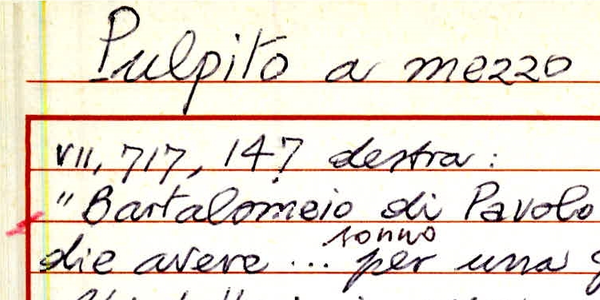 Pulpito a mezzo
VII, 717, 147 destra:
"Bartalomeio di Pavolo
sonno
die avere ... per una